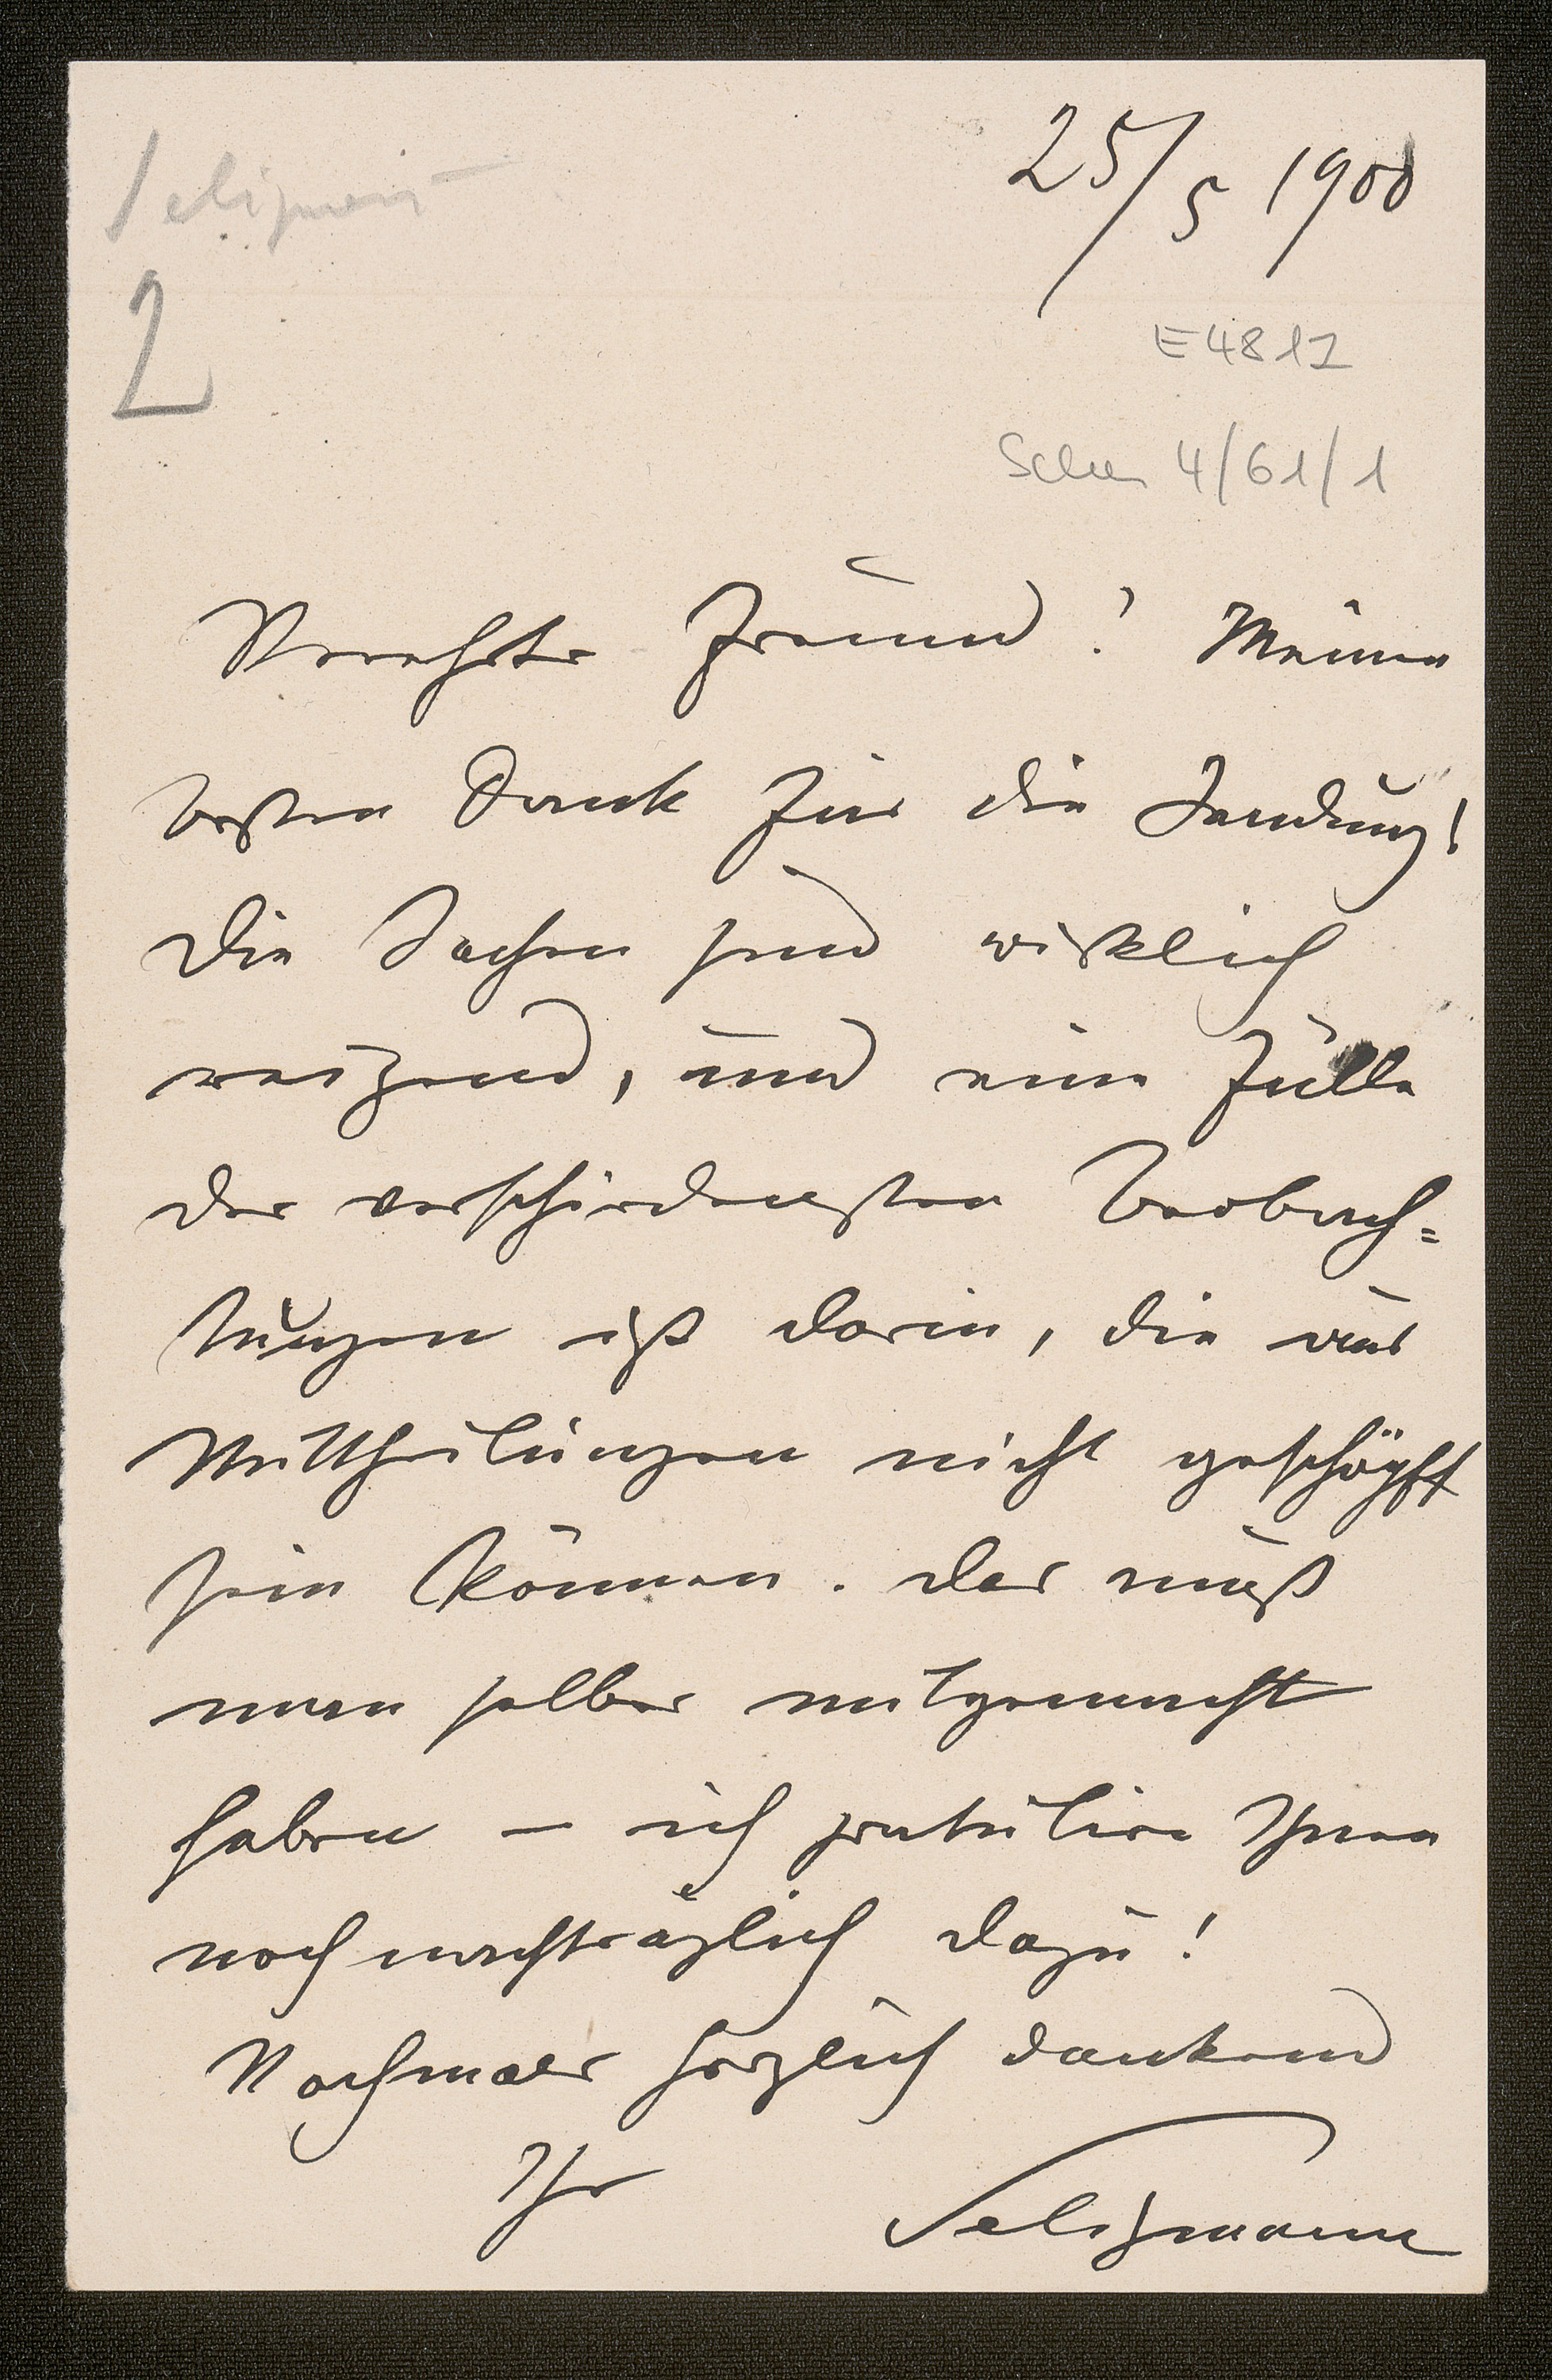 Seligmann
25/5 1900
2
E4812
Schen 4/61/1
Verehrter Freund! Meinen
besten Dank für die Sendung!
Die Sachen sind wirklich
reizend, und eine Fülle
der verschiedensten Beobach=
tungen ist darin, die aus
Mittheilungen nicht geschöpft
sein können. Das muß
man selber mitgemacht
haben – ich gratulire Ihnen
noch nachträglich dazu!
Nochmals herzlich dankend
Ihr Seligmann